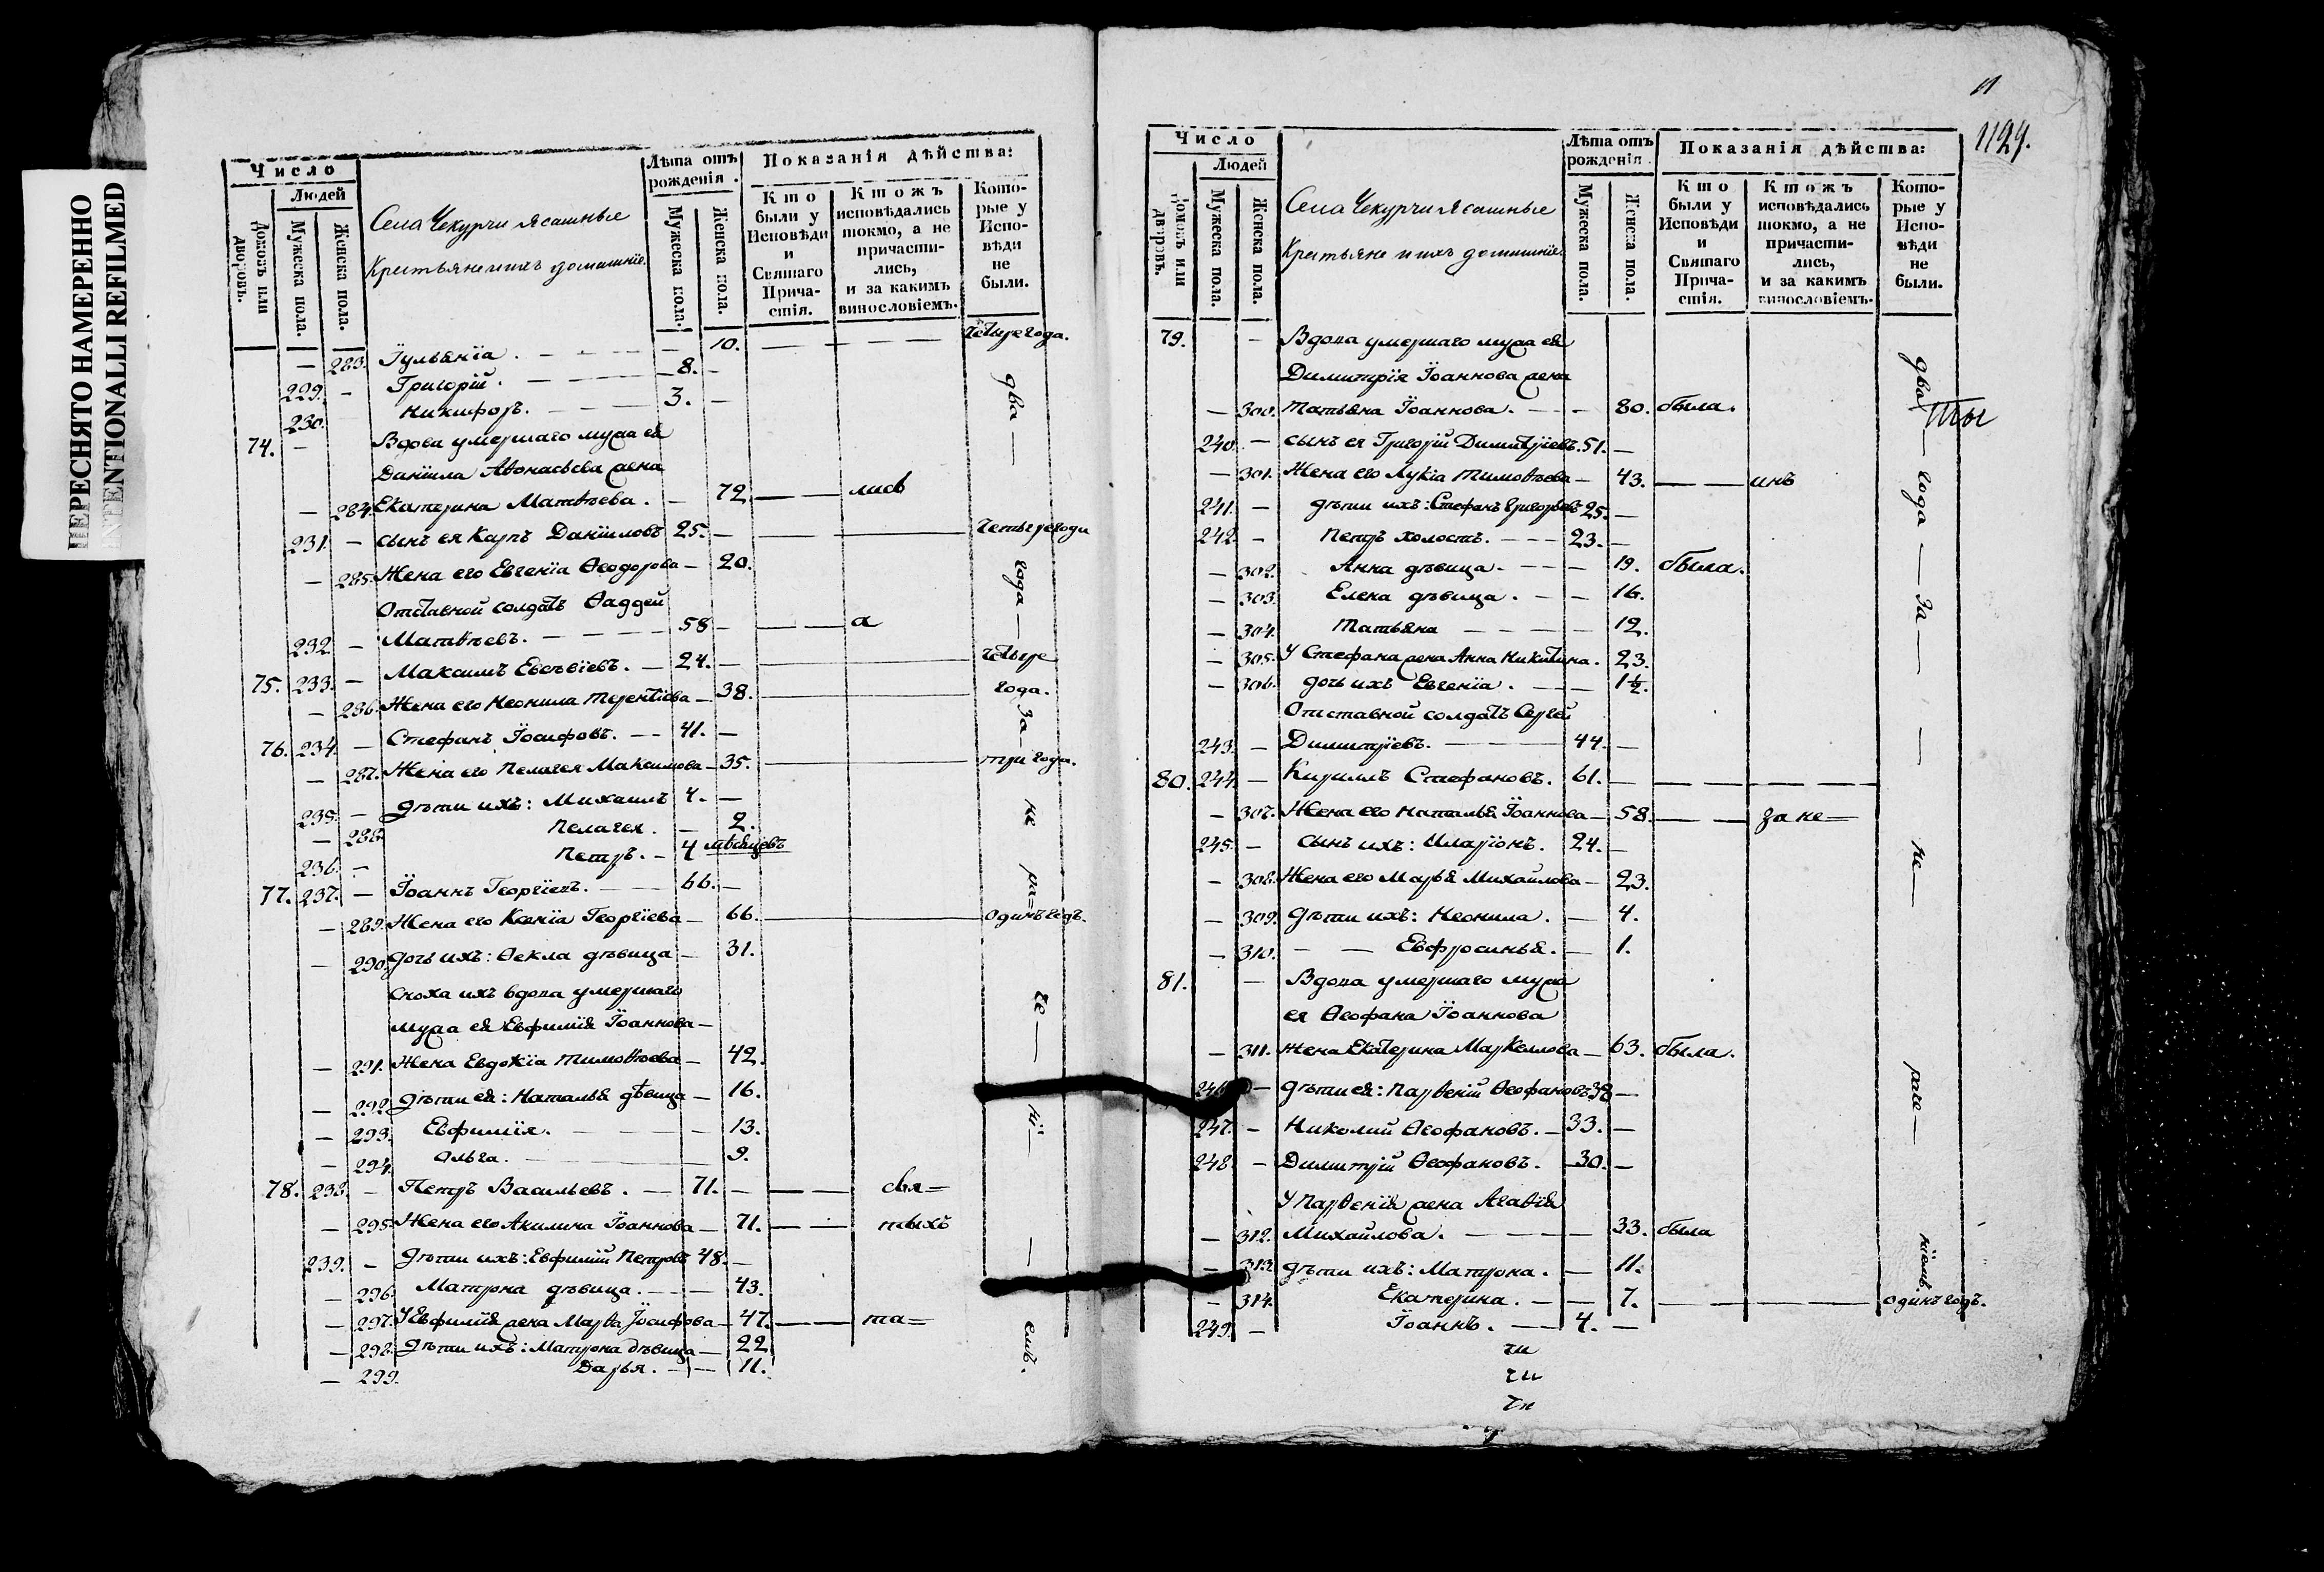 ПЕРЕСНЯТО НАМЕРЕННО
INTENTIONALLI REFILMED
Число
Людей
Домовъ или дворовъ.
Мужеска пола.
Женска пола.
Села Чекурчи Ясашные
Крестьяне и ихъ домашніе.
Лѣта отъ рожденія.
Мужеска пола.
Женска пола.
Показанія дѣйства:
Кто были у Исповѣди и Святаго Причастія.
Ктожъ исповѣдались токмо, а не причастились, и за какимъ винословіемъ.
Которые у Исповѣди не были.
— 283. Іульянія. — 10. — Четыре года.
229. — Григорій. — 8. —
230. Никифоръ. — 3. —
74. — Вдова умершаго мужа ея
Даніила Аѳонасьева жена
— 284. Екатерина Матвѣева. — 72. — лисъ
231. — сынъ ея Карпъ Даніиловъ 25. — Четыре годи
— 285. Жена его Евгенія Ѳеодорова — 20.
Отставной солдатъ Ѳаддей
232. — Матвѣевъ. — 58 — а
75. 233. — Максимъ Евсѣвіевъ. — 24. — четыре
— 286. Жена его Неонила Терентіева — 38. — года.
76. 234. — Стефанъ Іосифовъ. — 41. —
— 287. Жена его Пелагея Максимова — 35. — три года.
235. — дѣти ихъ: Михаилъ 4. —
— 288. Пелагея. — 2.
236. — Петръ. — 4 мѣсяцевъ
77. 237. — Іоаннъ Георгіевъ. — 66. —
— 289. Жена его Ксенія Георгіева — 66. — одинъ годъ.
— 290. дочь ихъ: Ѳекла дѣвица — 31.
Сноха ихъ вдова умершаго
мужа ея Евфимія Іоаннова —
— 291. Жена Евдокія Тимоѳѣева — 42.
— 292. дѣти ея: Наталья дѣвица — 16.
— 293. Евфимія. — 13.
— 294. Ольга. — 9.
78. 238. — Петръ Васильевъ. — 71. — свя=
— 295. Жена его Акилина Іоаннова — 71. — тыхъ
239. — дѣти ихъ: Евфимій Петровъ 48. —
— 296. Матрона дѣвица. — 43.
— 297. У Евфимія жена Марѳа Іосифова — 47. — та=
— 298. дѣти ихъ: Матрона дѣвица — 22
— 299. Дарья. — 11.
два — года — за — не ра= че — ні — емъ.
11
1129.
Число
Людей
Домовъ или дворовъ.
Мужеска пола.
Женска пола.
Села Чекурчи Ясашные
Крестьяне и ихъ домашніе.
Лѣта отъ рожденія.
Мужеска пола.
Женска пола.
Показанія дѣйства:
Кто были у Исповѣди и Святаго Причастія.
Ктожъ исповѣдались токмо, а не причастились, и за какимъ винословіемъ.
Которые у Исповѣди не были.
79. — Вдова умершаго мужа ея
Димитрія Іоаннова жена
— 300. Татьяна Іоаннова. — 80. была.
240. — сынъ ея Григорій Димитріевъ. 51. —
— 301. Жена его Лукіа Тимоѳѣева — 43. — инъ
241. — дѣти ихъ: Стефанъ Григорьевъ 25. —
242. — Петръ холостъ. — 23. —
— 302. Анна дѣвица. — 19. была.
— 303. Елена дѣвица. — 16.
— 304. Татьяна — 12.
— 305. У Стефана жена Анна Никитина. 23.
— 306. дочь ихъ Евгенія. — 1½.
Отставной солдатъ Сергей
243. — Димитріевъ. — 44. —
80. 244. — Кирилъ Стефановъ. 61. —
— 307. Жена его Наталья Іоаннова — 58. — за не=
245. — сынъ ихъ: Иларіонъ. 24. —
— 308. Жена его Марья Михайлова — 23.
— 309. дѣти ихъ: Неонила. — 4.
— 310. — Евфросинья. — 1.
81. — Вдова умершаго мужа
ея Ѳеофана Іоаннова
— 311. жена Екатерина Маркеллова — 63. была.
246. — дѣти ея: Парѳеній Ѳеофановъ 38 —
247. — Николай Ѳеофановъ. — 33. —
248. — Димитрій Ѳеофановъ. — 30. —
У Парѳенія жена Агаѳія
— 312. Михайлова. — 33. была
— 313. дѣти ихъ: Матрона. — 11.
— 314. Екатерина. — 7. — одинъ годъ.
249. — Іоаннъ. — 4. —
два — года — за — не — раче — ніемъ.